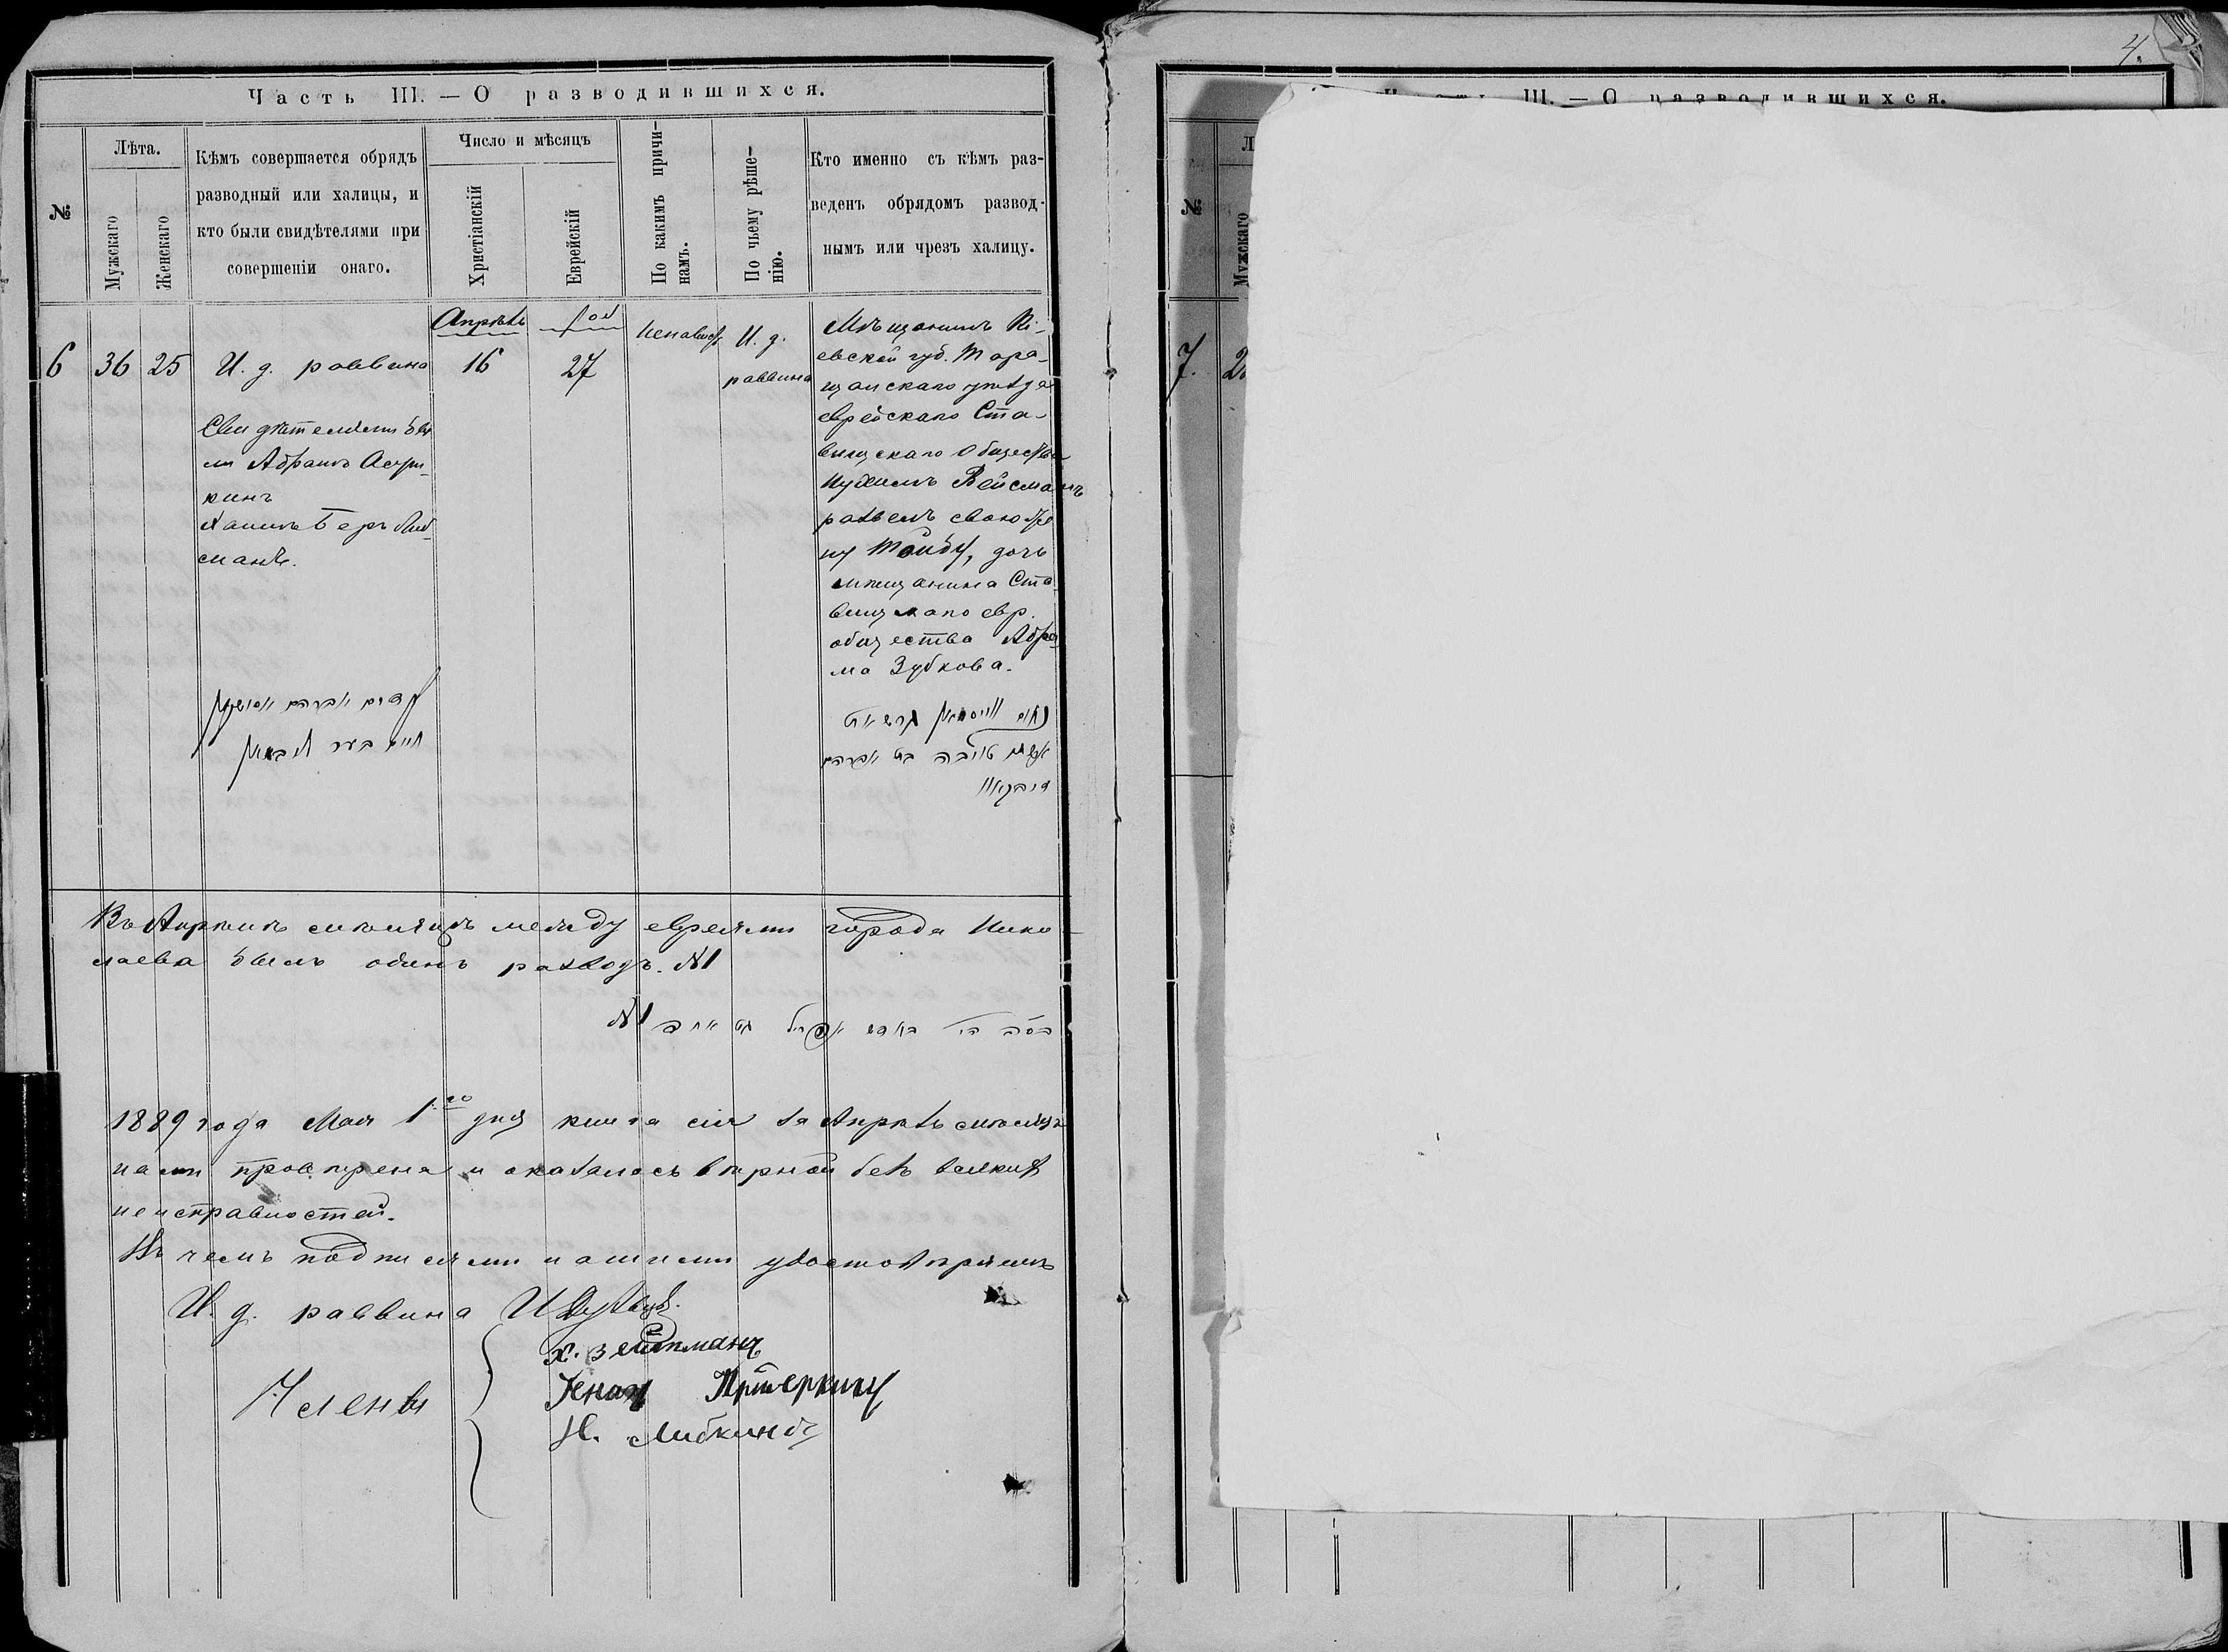 4.
Часть III. — О разводившихся.
№
Лѣта.
Мужскаго
Женскаго
Кѣмъ совершается обрядъ
разводный или халицы, и
кто были свидѣтелями при
совершеніи онаго.
Число и мѣсяцъ
Христіанскій
Еврейскій
По какимъ причи-
намъ.
По чьему рѣше-
нію.
Кто именно съ кѣмъ раз-
веденъ обрядомъ развод-
нымъ или чрезъ халицу.
Апрѣль
6 36 25 И. д. раввина 16 27
И. д.
раввина
Свидѣтелями бы
ли Абрамъ
кинъ
Хаимъ Беръ Либ
сманъ.
Мѣщанинъ Кі-
евской губ. Тара-
щанскаго уѣзда
еврейскаго Ста-
вищскаго Общества
Нухимъ Вейсманъ
развелъ свою же
ну Тойбу, дочь
мѣщанина Ста
вищскаго евр.
общества Абра
ма Зубкова.
אברהם
חיים בער
נחום ווייסמאן גרש את
אשתו טויבה בת אברהם
זובקאוו
Въ Апрѣлѣ мѣсяцѣ между евреями города Нико
лаева былъ одинъ разводъ. №1
בחדש אפריל גט אחד №1
1889 года Мая 1го дня книга сія за Апрѣль мѣсяцъ
нами провѣрена и оказалось вѣрной безъ всякихъ
неисправностей.
Въ чемъ подписями нашими удостовѣряемъ
И. д. раввина
Члены
Х. Зейтманъ
Н. Либкиндъ
Часть III. — О разводившихся.
№
Мужскаго
7.